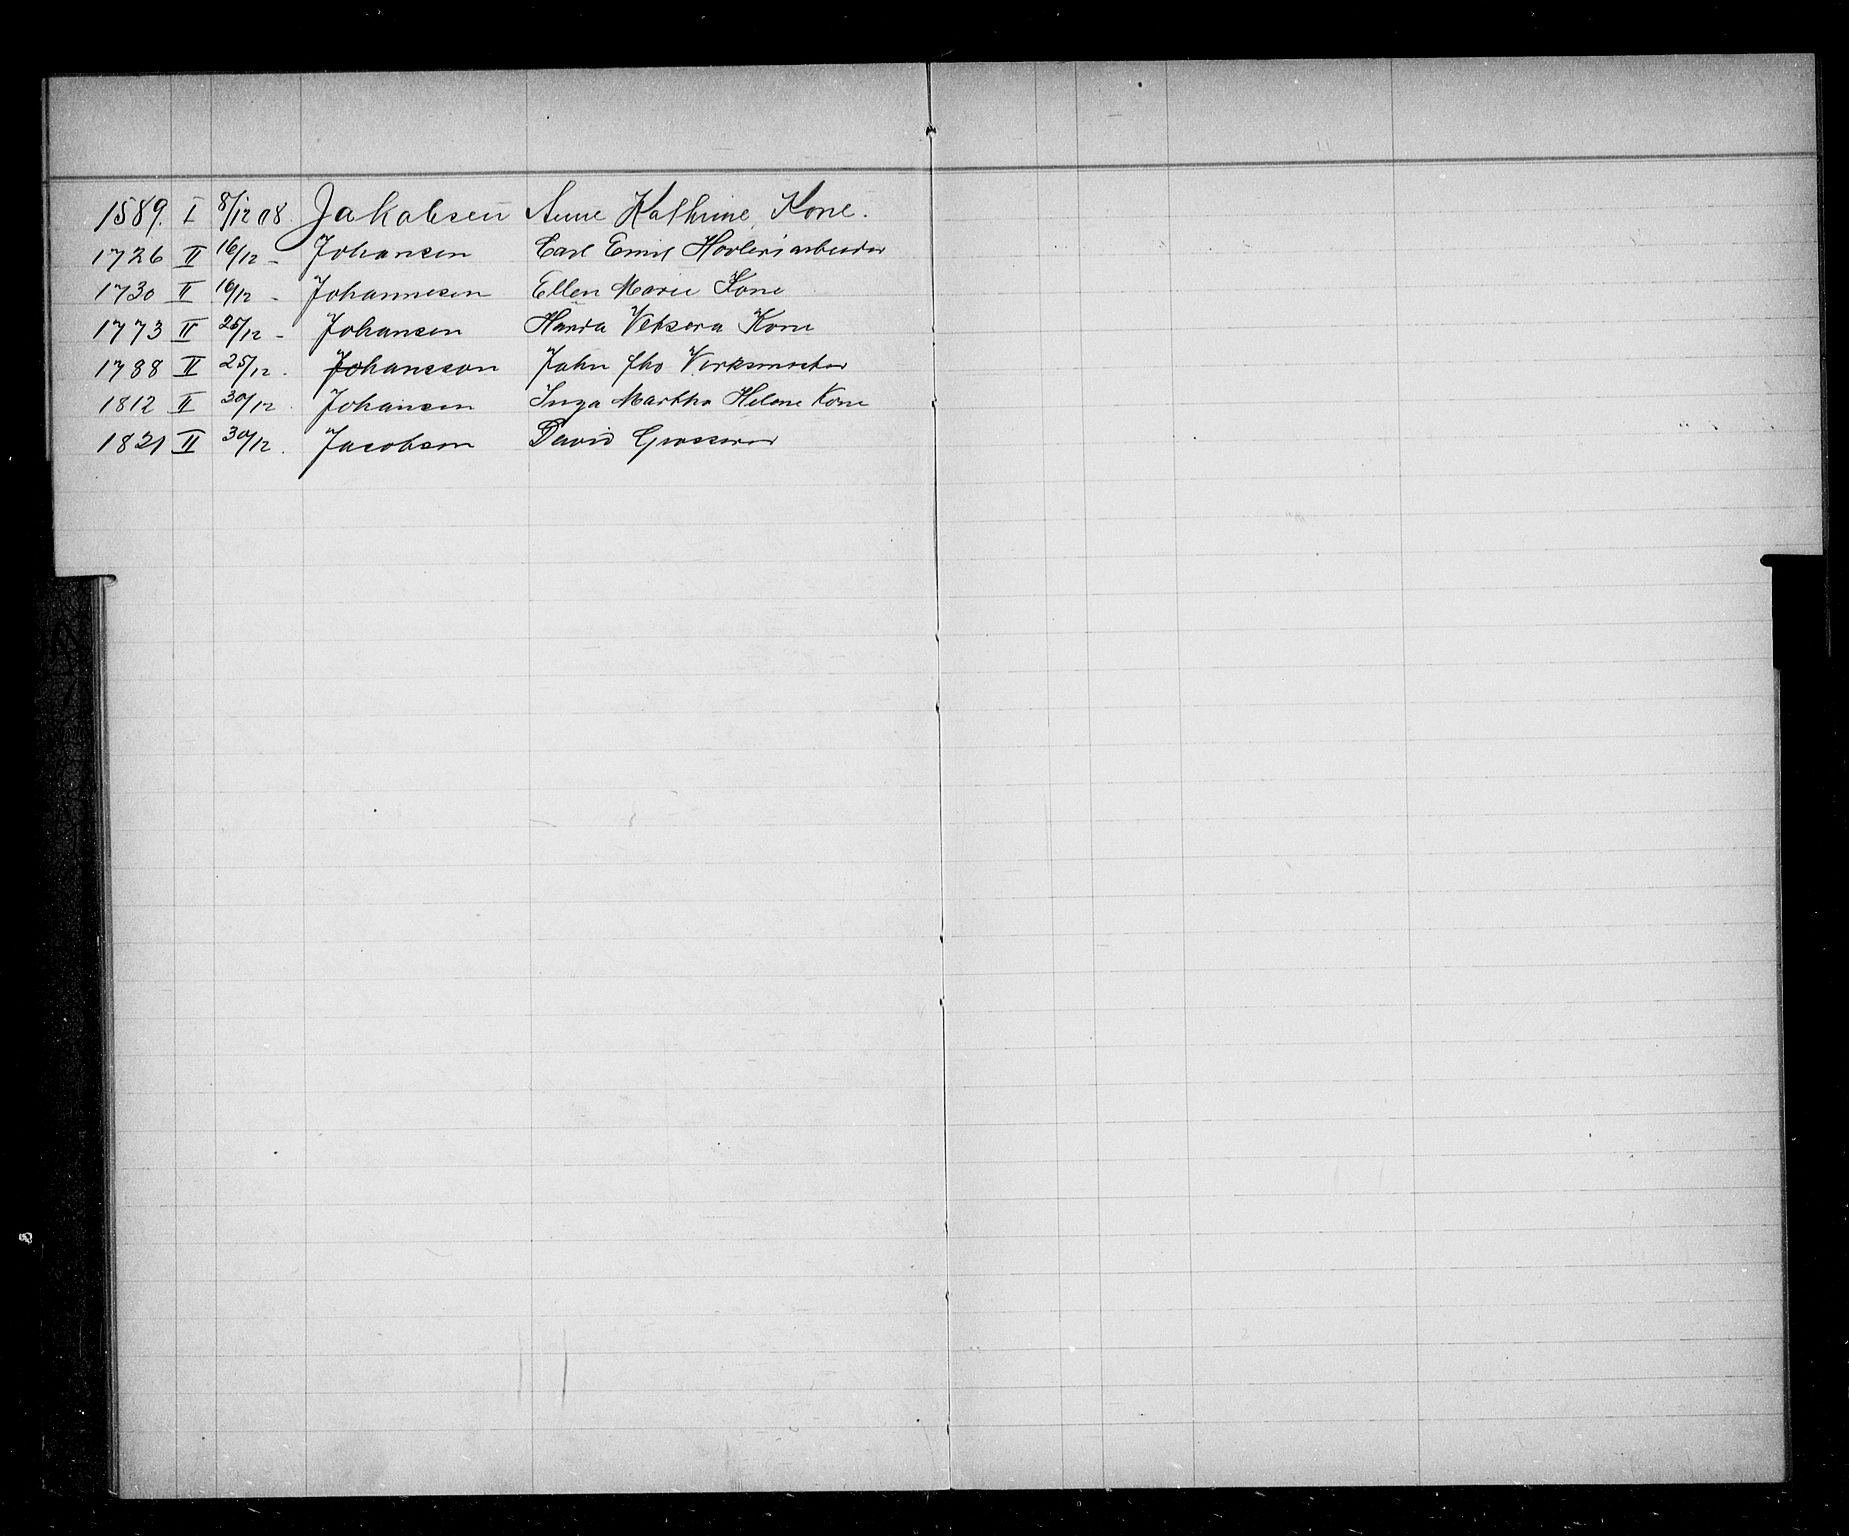 1589. I 8/12 08. Jakobsen Anne Kathrine Kone.
1726 II 16/12 - Johansen Carl Emil Høvleriarbeider
1730 II 16/12 - Johannesen Ellen Marie Kone
1773 II 25/12 - Johansen Kone
1788 II 25/12 . Johansson John Verksmester
1812 II 30/12 . Johansen Inga Martha Helene Kone
1821 II 30/12 . Jacobsen David Grosserer